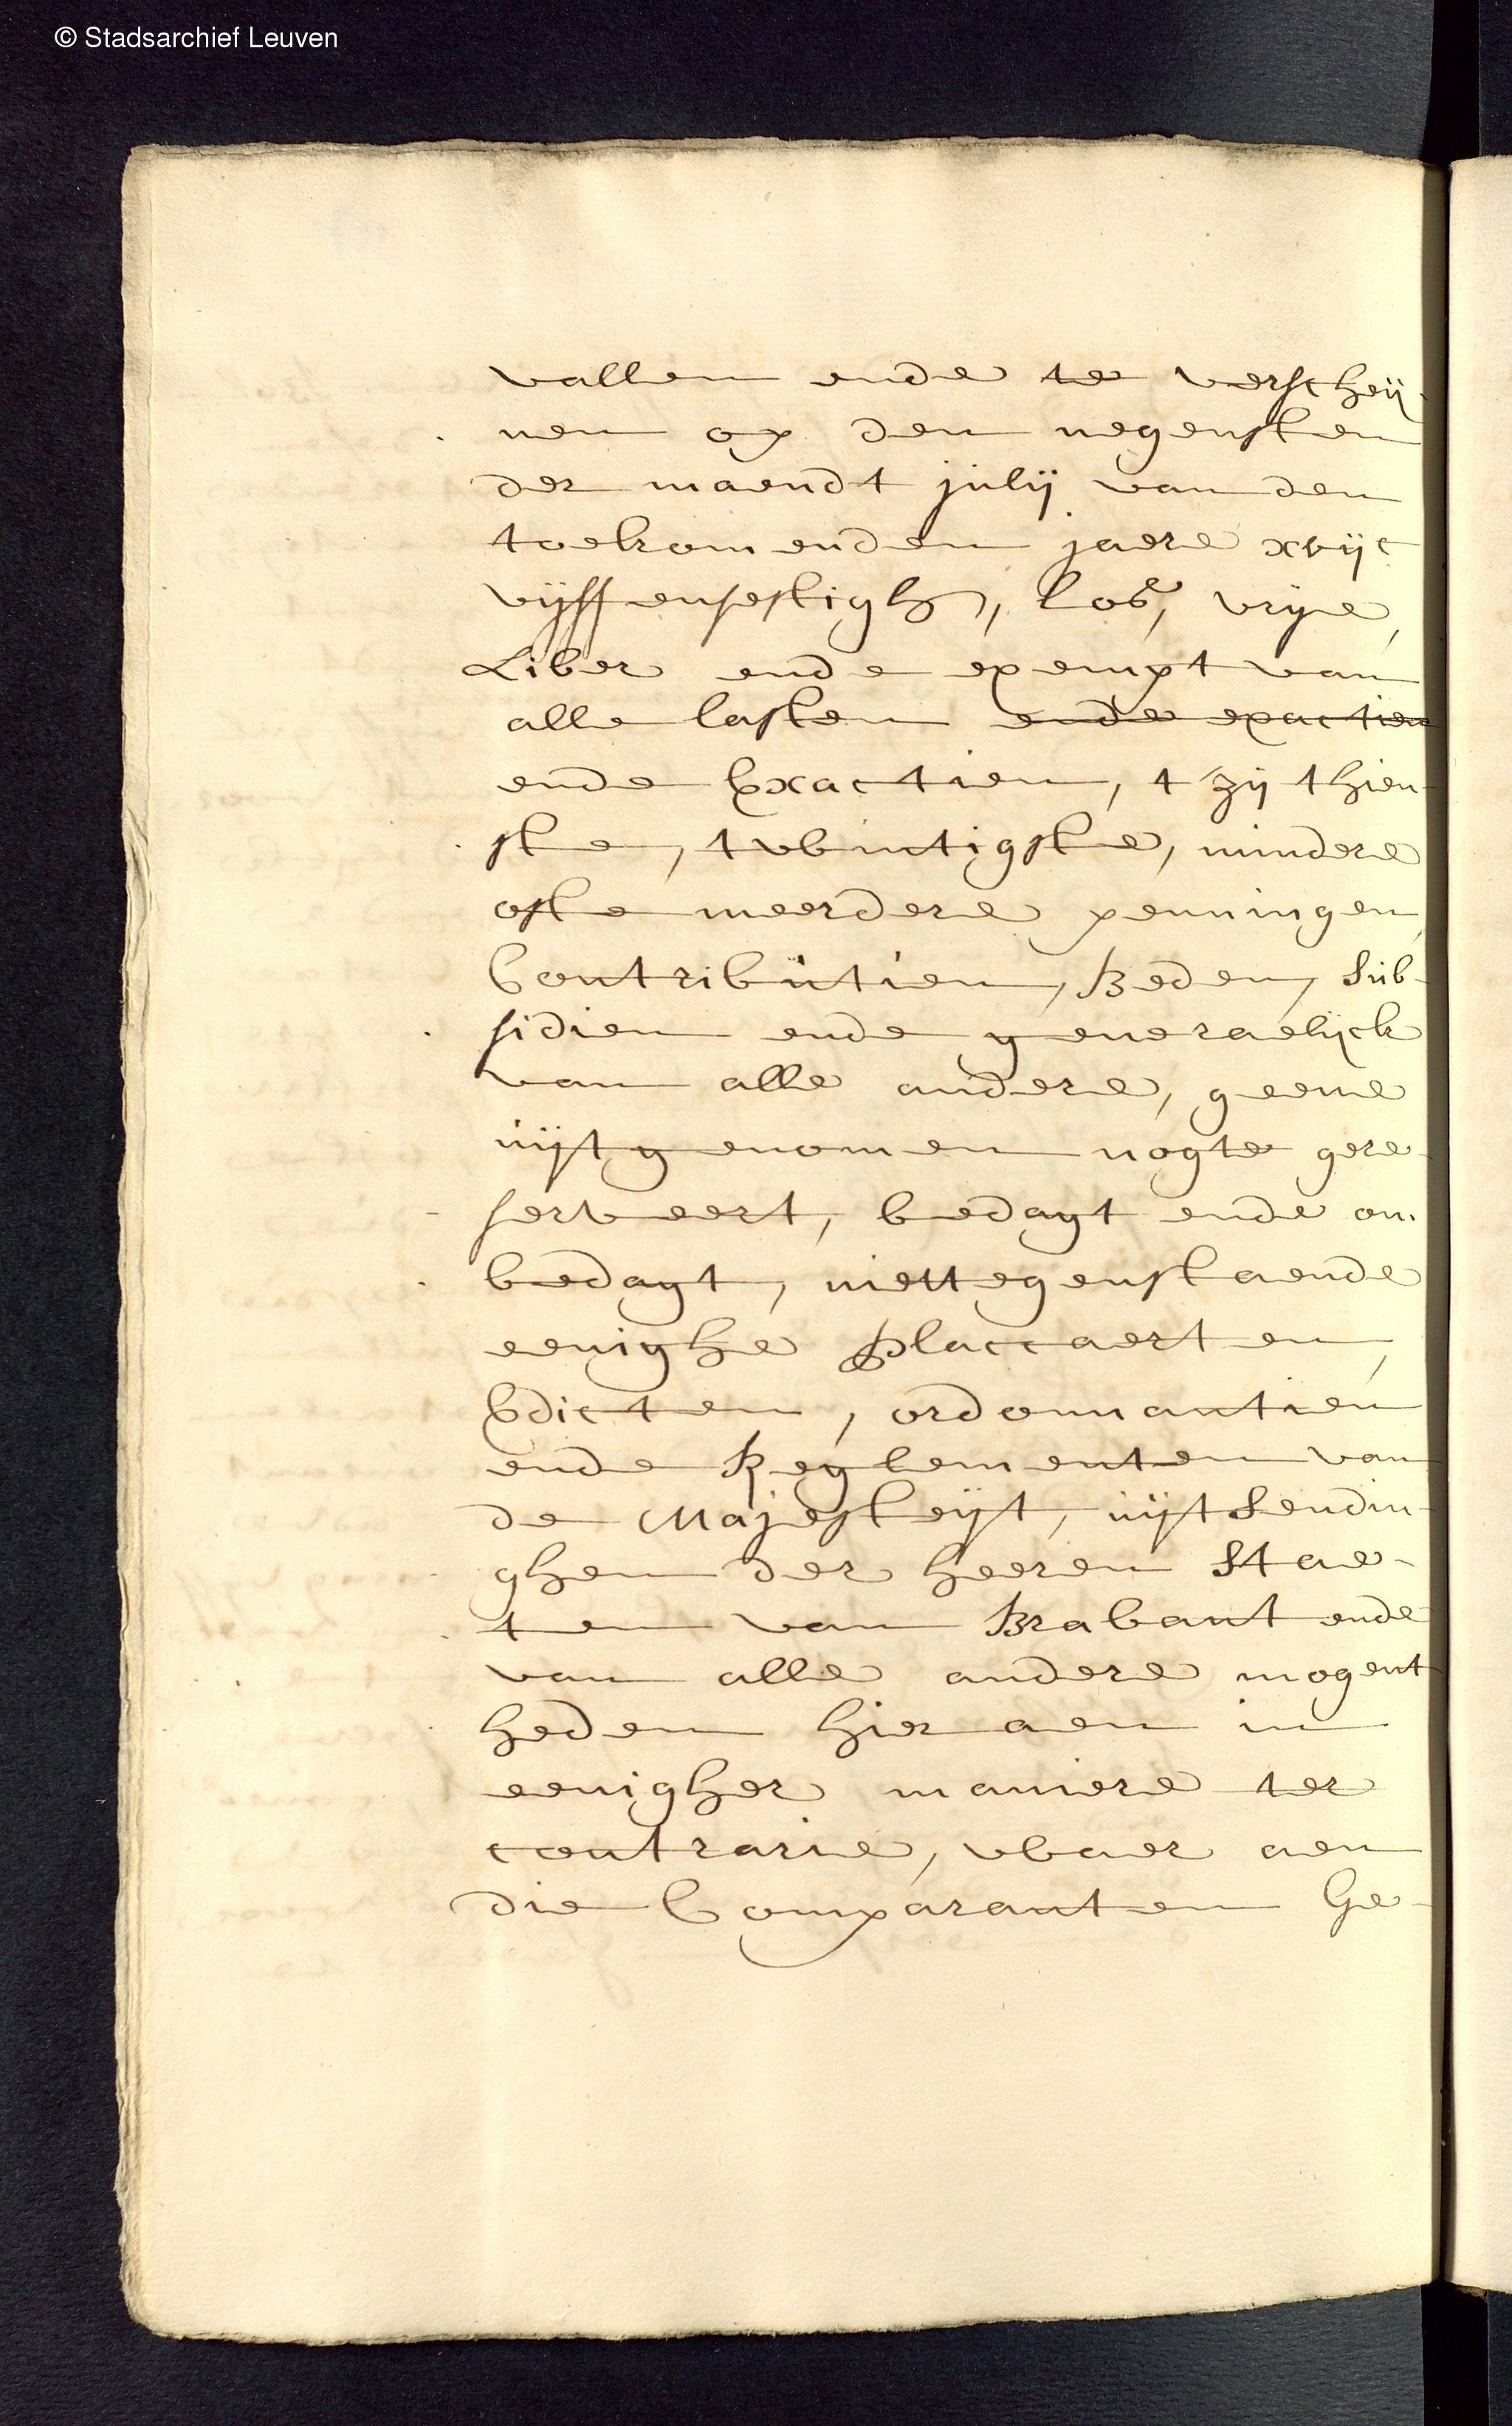 © Stadsarchief Leuven
vallen ende te verscheij-
nen op den negensten
der maendt julij van den
toekomenden jaere xvijc
vijffensestigh, los, vrije,
Liber ende exempt van
alle lasten ende exactien
ende Exactien, t'zij thien-
ste, twintigste, mindere
ofte meerdere penningen,
Contributien, Beden, Sub-
sidien ende generaelijck
van alle andere, geene
uijtgenomen nogte gere-
serveert, bedagt ende on-
bedagt, niettegenstaende
eenighe placcaerten,
Edicten, ordonnantien
ende Reglementen van
de Majesteijt, uijtsendin-
ghen der heeren Stae-
ten van Brabant ende
van alle andere mogent
heden hier aen in
eenigher maniere ter
contrarie, waer aen
die Comparanten Ge-